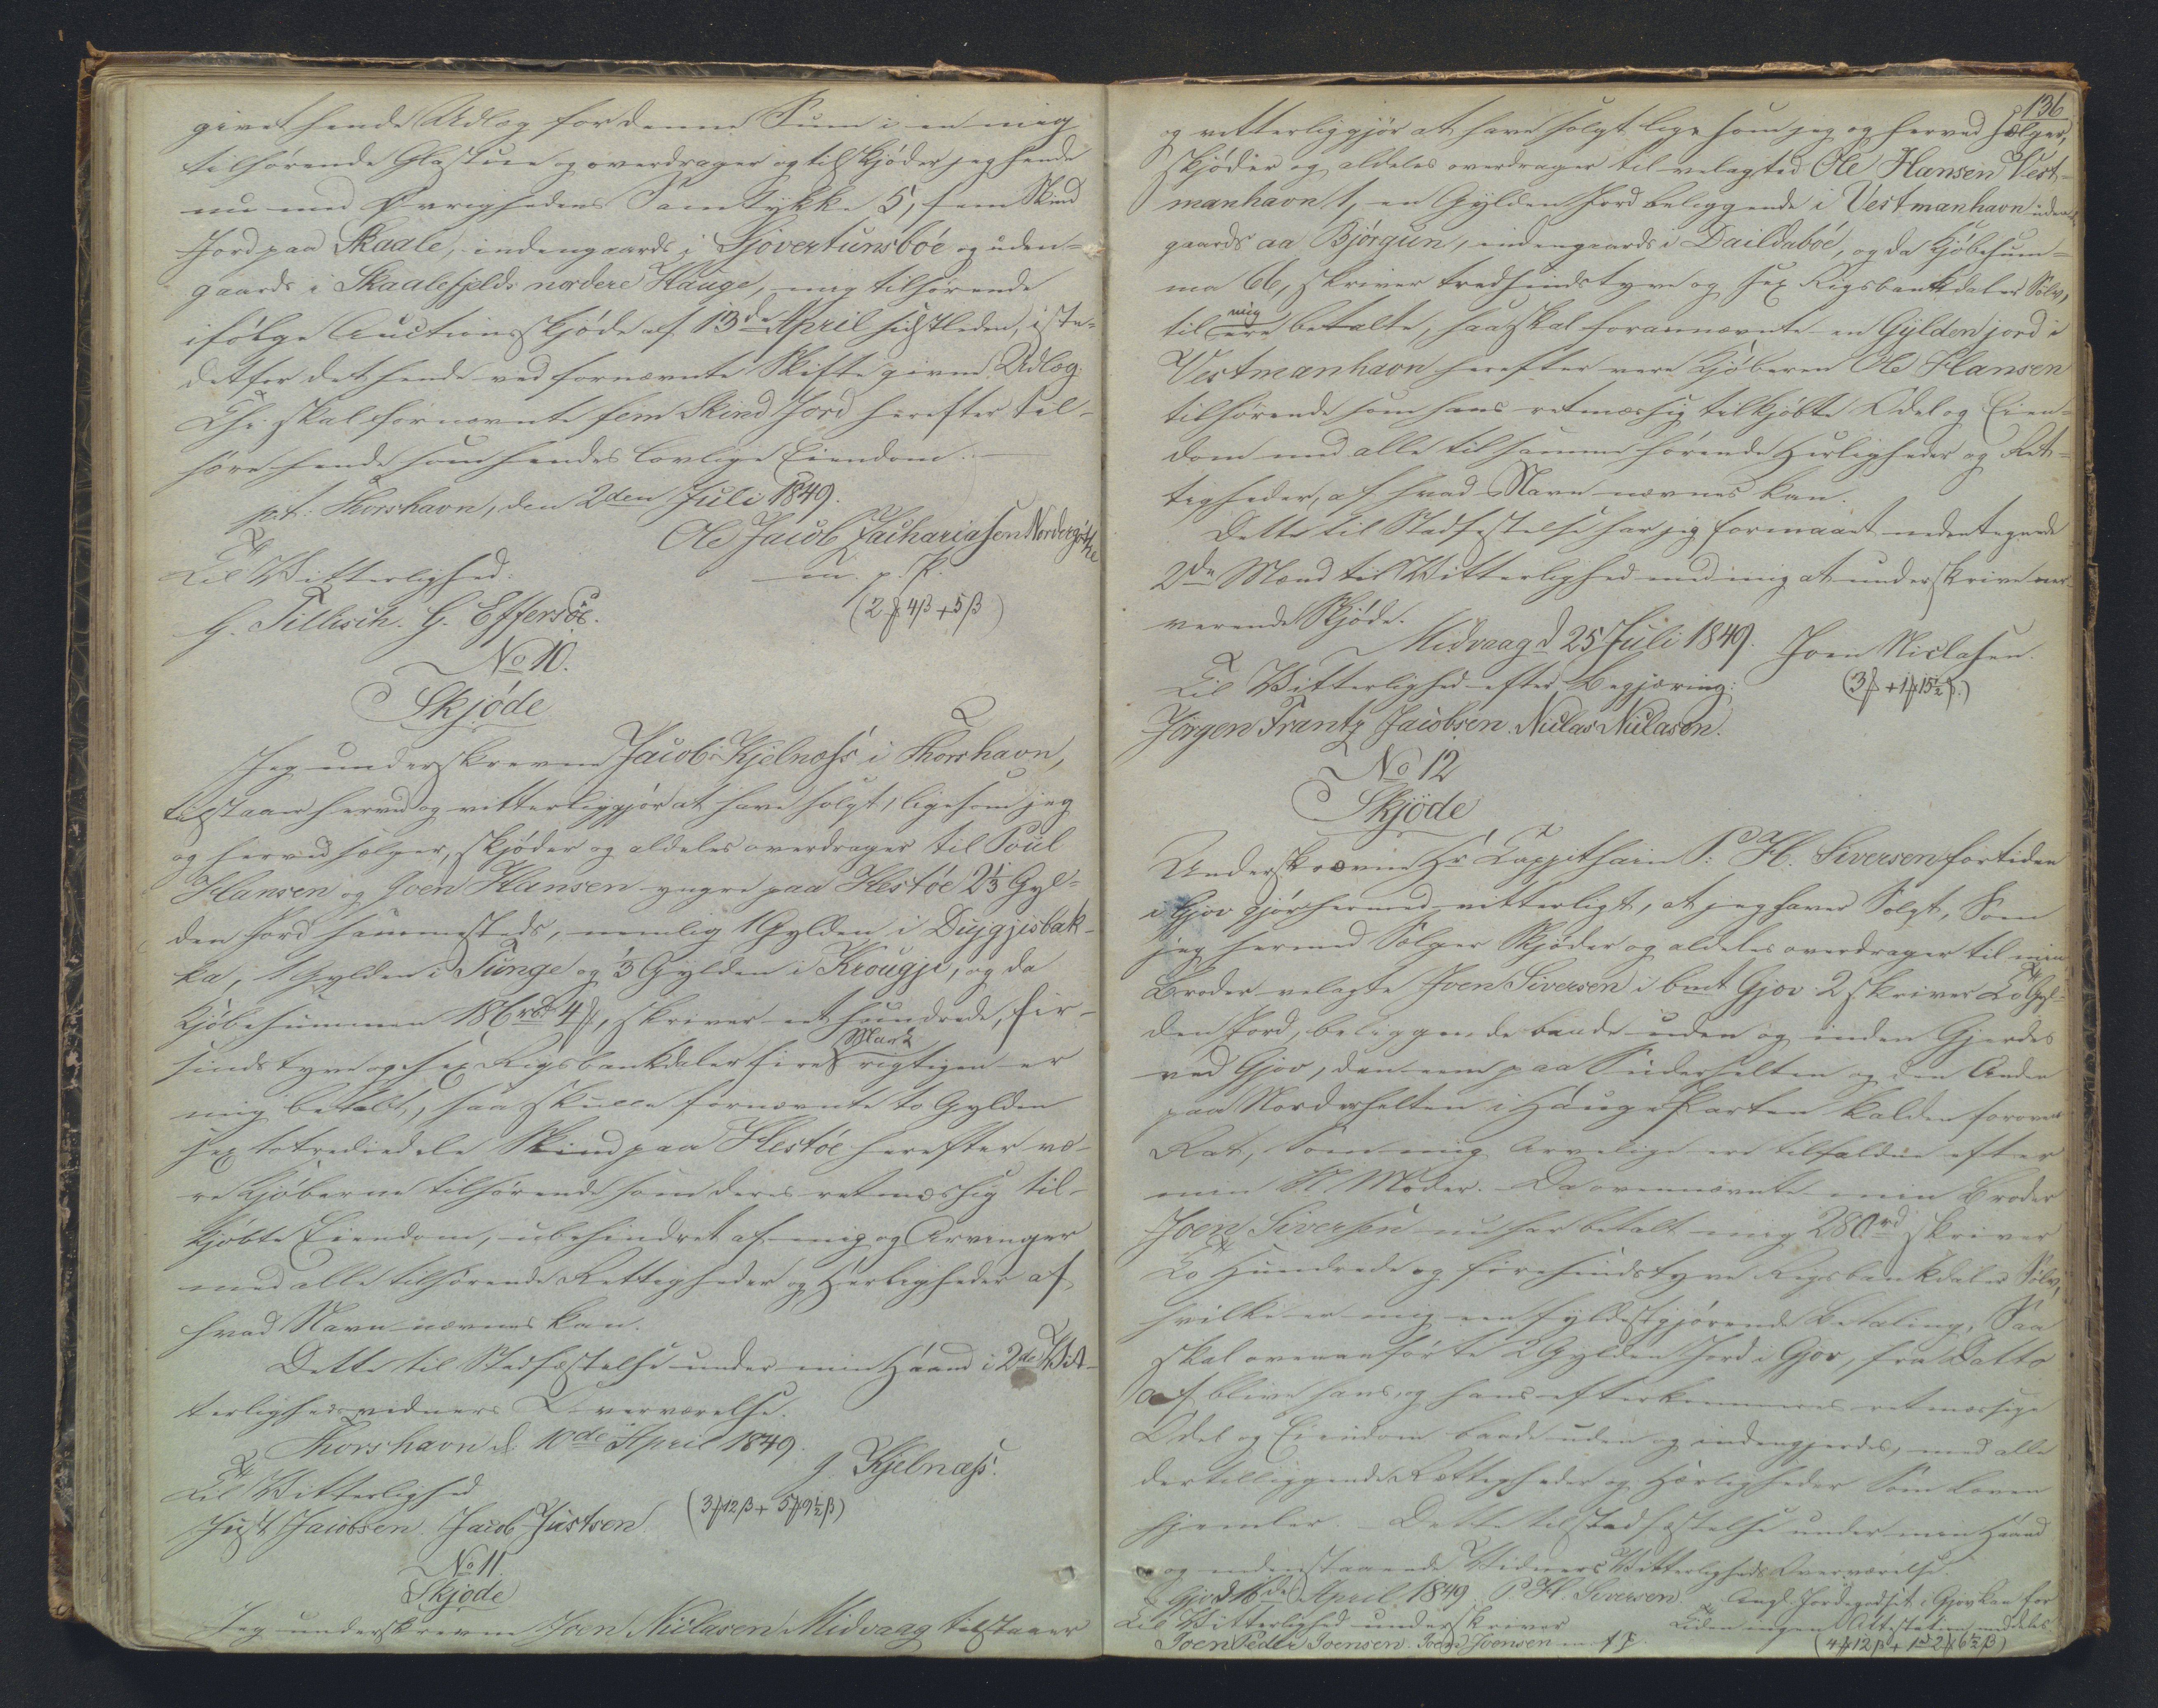 givet hende Udlæg for denne Sum i en mig
tilhørende Glastue og overdrager og tilskjøder jeg hende
nu med Øvrighedens Samtykke 5, fem Skind
Jord paa Skaale, indengaards i Sjovertunsbøe og uden-
gaards i Skaalefjelds nordere Hauge, mig tilhørende
ifølge Auctionsskjøde af 13de April sidstleden, iste-
detfor det hende ved fornævnte Skifte givne Udlæg.
Thi skal fornævnte fem Skind Jord herefter til-
høre hende som hendes lovlige Eiendom.
p.t. Thorshavn, den 2den Juli 1849.
Ole Jacob Zachariasen Nordregøthe
m. p. P.
Til Vitterlighed:
G. Tillisch. G. Effersøe.
(2 ₰ 4 β + 5 β)
No 10.
Skjøde
Jeg underskrevne Jacob Kjelnæss i Thorshavn,
tilstaaer herved og vitterliggjør at have solgt, ligesom jeg
og herved sælger, skjøder og aldeles overdrager til Poul
Hansen og Joen Hansen yngre paa Hestøe 2⅓ Gyl-
den Jord sammesteds, nemlig 1 Gylden i Dujgjisbak-
ka, 1 Gylden i Tunge og ⅓ Gylden i Krougje, og da
Kjøbesummen 186 rbd 4 ₰, skriver et hundrede, fir-
sindstyve og sex Rigsbankdaler fire Mark rigtigen er
mig betalt, saa skulle fornævnte to Gylden
sex totrediedele Skind paa Hestøe herefter væ-
re Kjøberne tilhørende som deres retmæssig til-
kjøbte Eiendom, ubehindret af mig og Arvinger
med alle tilhørende Rettigheder og Herligheder af
hvad Navn nævnes kan.
Dette til Stadfæstelse under min Haand i 2de Vit-
terlighedsvidners Overværelse.
Thorshavn d. 10de April 1849.
J. Kjelnæss.
Til Vitterlighed
Just Jacobsen. Jacob Justson.
(3 ₰ 12 β + 5 ₰ 9½ β)
No 11.
Skjøde
Jeg underskrevne Joen Niclasen Midvaag tilstaaer
136
og vitterliggjør at have solgt lige som jeg og herved sælger,
skjøder og aldeles overdrager til velagted Ole Hansen Vest-
manhavn 1, en Gylden Jord beliggende i Vestmanhavn uden-
gaards aa Bjørgun, indengaards i Daildabøe, og da Kjøbesum-
ma 66, skriver tredsindstyve og sex Rigsbankdaler Sølv,
til mig ere betalte, saa skal forannævnte en Gylden jord i
Vestmanhavn herefter være Kjøberen Ole Hansen
tilhørende som hans retmæssig tilkjøbte Odel og Eien-
dom med alle til samme hørende Herligheder og Ret-
tigheder, af hvad Navn nævnes kan.
Dette til Stadfæstelse har jeg formaaet nedentegnede
2de Mænd til Vitterlighed med mig at underskrive nær-
værende Skjøde.
Midvaag d 25 Juli 1849.
Joen Niclasen.
Til Vitterlighed efter Begjæring:
(3 ₰ + 1 ₰ 15½ β.)
Jørgen Frantz Jacobsen. Niclas Niclasen.
No 12
Skjøde
Underskrevne Hr Cappithain P. H. Siversen for tiden
i Gjov gjør hermed vitterligt, at jeg haver Solgt, Som
jeg hermed Sælger Skjøder og aldeles overdrager til min
Broder velagte Joen Siversen i bmt Gjov 2 skriver To Gyl-
den Jord, beliggende baade uden og inden Gjerdes
ved Gjov, den eene paa Suderhelten og den Anden
paa Norderhelten i Hauge Parten kalden
Rat, Som mig Arvelige ere tilfalden efter
min Sl. Moder. Da ovennævnte min Broder
Joen Siversen nu har betalt mig 280 rd skriver
To Hundrede og firesindstyve Rigsbankdaler Sølv,
hvilke er mig een fyldestgjørende betaling, Saa
skal ovenanførte 2 Gylden Jord i Gjov, fra Datto
af blive hans og hans efterkommeres retmæssige
Odel og Eiendom baade uden og indengjerdes, med alle
dertilliggende Rættigheder og Hærligheder Som Loven
hjemler. Dette til stadfæstelse under min Haand
og nedenstaaende Vidners Vitterligheds Overværelse.
Gjov d. 16de April 1849. P. H. Siversen. Angl. Jordegodset i Gjov kan for
Til Vitterlighed underskriver
Tiden ingen Attestation meddeles
Joen Peder Joensen. Joen Joensen m. f. P.
(4 ₰ 12 β + 1 rd 2 ₰ 6½ β)